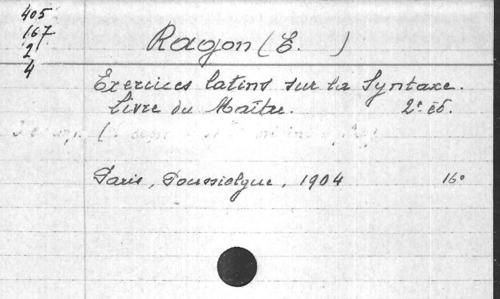 405
167
2
4
Ragon (E. )
Exercices latins sur la Syntaxe.
Livre du Maître. 2e éd.
Paris, Poussielgue, 1904 16o